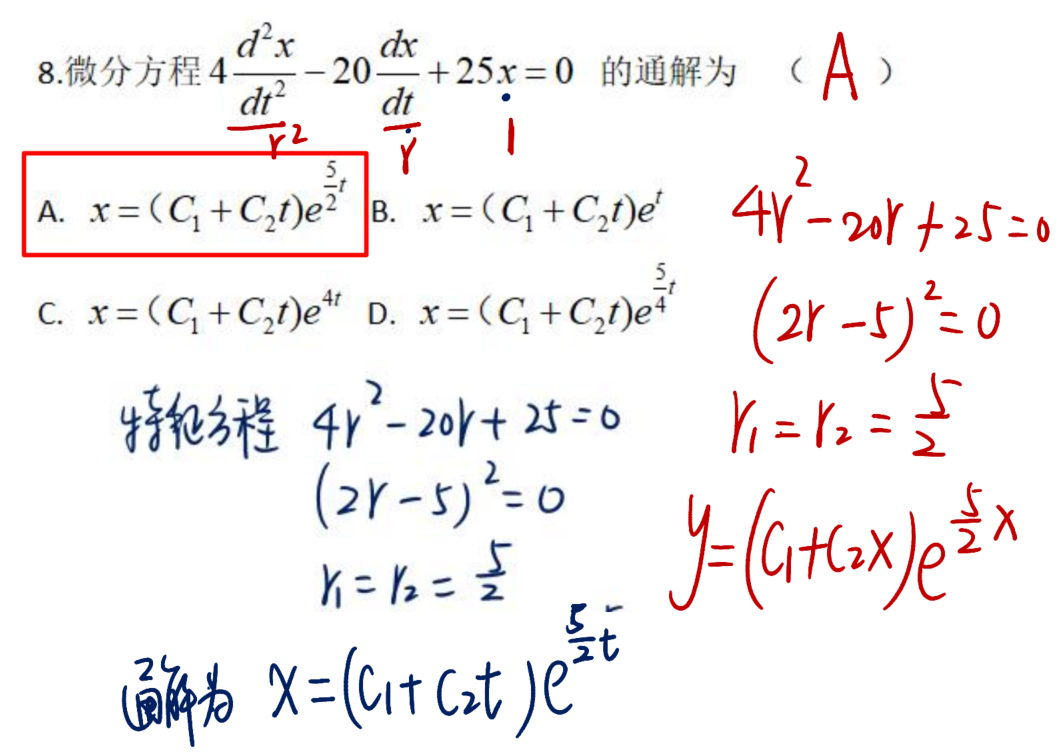 8.微分方程 4 d²x/dt² − 20 dx/dt + 25x = 0 的通解为 （ A ）
r² r 1
A. x = (C₁ + C₂t)e^{5/2 t} B. x = (C₁ + C₂t)e^t
C. x = (C₁ + C₂t)e^{4t} D. x = (C₁ + C₂t)e^{5/4 t}
4r² − 20r + 25 = 0
(2r − 5)² = 0
r₁ = r₂ = 5/2
y = (C₁ + C₂x)e^{5/2 x}
特征方程 4r² − 20r + 25 = 0
(2r − 5)² = 0
r₁ = r₂ = 5/2
通解为 x = (C₁ + C₂t)e^{5/2 t}